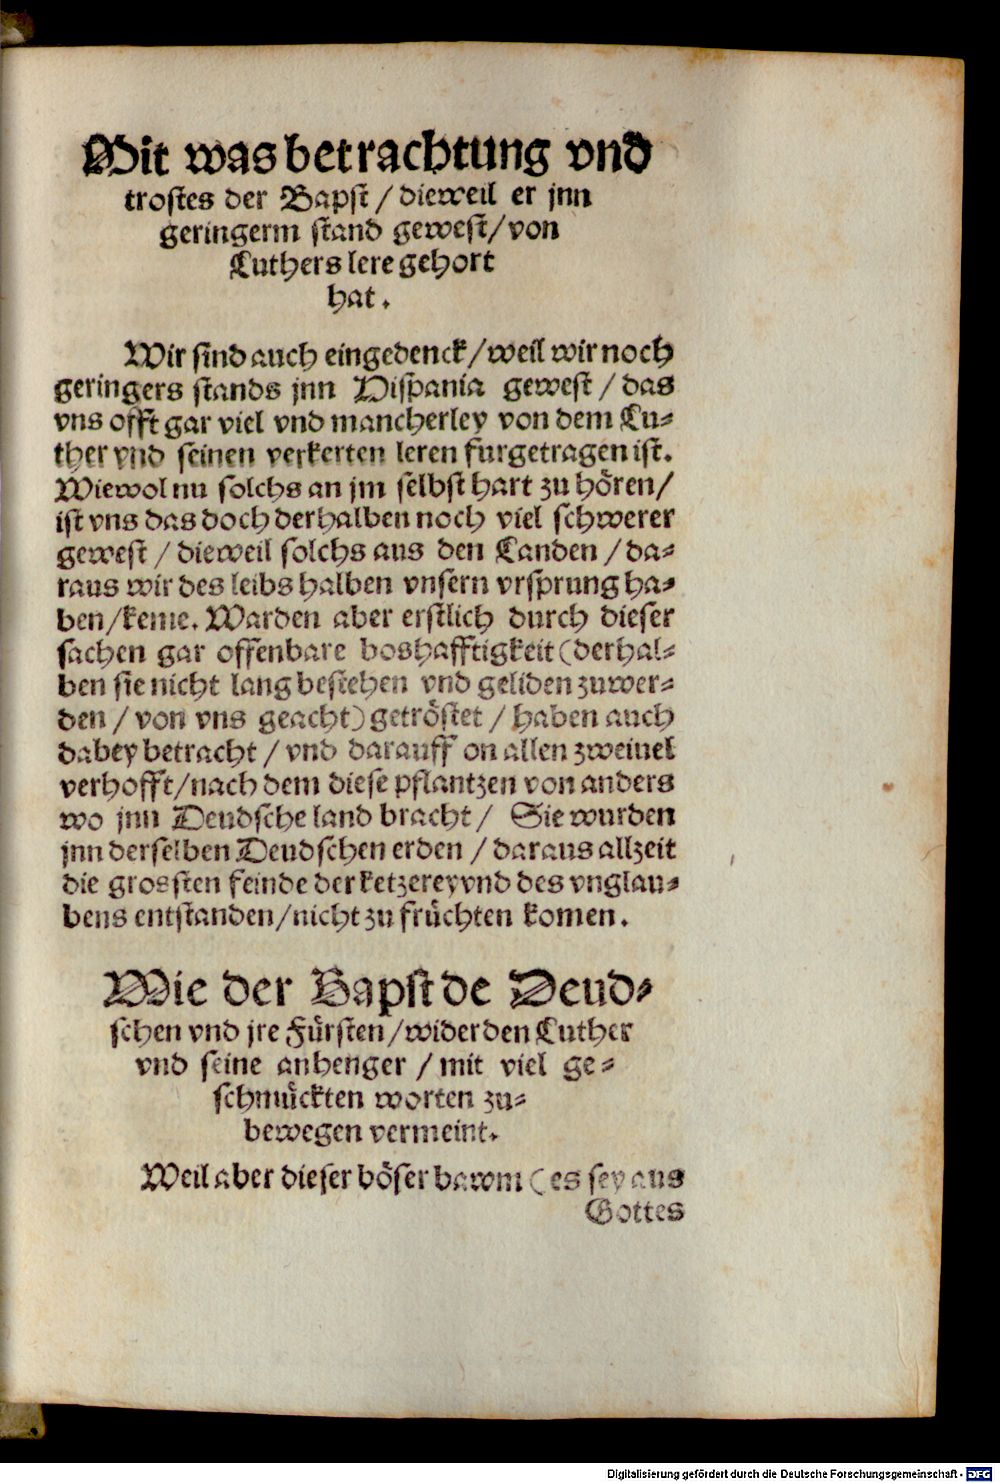 Mit was betrachtung vnd
trostes der Bapst / dieweil er jnn
geringerm stand gewest / von
Luthers lere gehort
hat.
Wir sind auch eingedenck / weil wir noch
geringers stands jnn Hispania gewest / das
vns offt gar viel vnd mancherley von dem Lu-
ther vnd seinen verkerten leren furgetragen ist.
Wiewol nu solchs an jm selbst hart zu hören /
ist vns das doch derhalben noch viel schwerer
gewest / dieweil solchs aus den Landen / da-
raus wir des leibs halben vnsern vrsprung ha-
ben / keme. Warden aber erstlich durch dieser
sachen gar offenbare boshafftigkeit (derhal-
ben sie nicht lang bestehen vnd geliden zuwer-
den / von vns geacht) getröstet / haben auch
dabey betracht / vnd darauff on allen zweiuel
verhofft / nach dem diese pflantzen von anders
wo jnn Deudsche land bracht / Sie wurden
jnn derselben Deudschen erden / daraus allzeit
die grossten feinde der ketzerey vnd des vnglau-
bens entstanden / nicht zu früchten komen.
Wie der Bapst de Deud-
schen vnd jre Fürsten / wider den Luther
vnd seine anhenger / mit viel ge-
schmückten worten zu-
bewegen vermeint.
Weil aber dieser böser bawm (es sey aus
Gottes
Digitalisierung gefördert durch die Deutsche Forschungsgemeinschaft - DFG